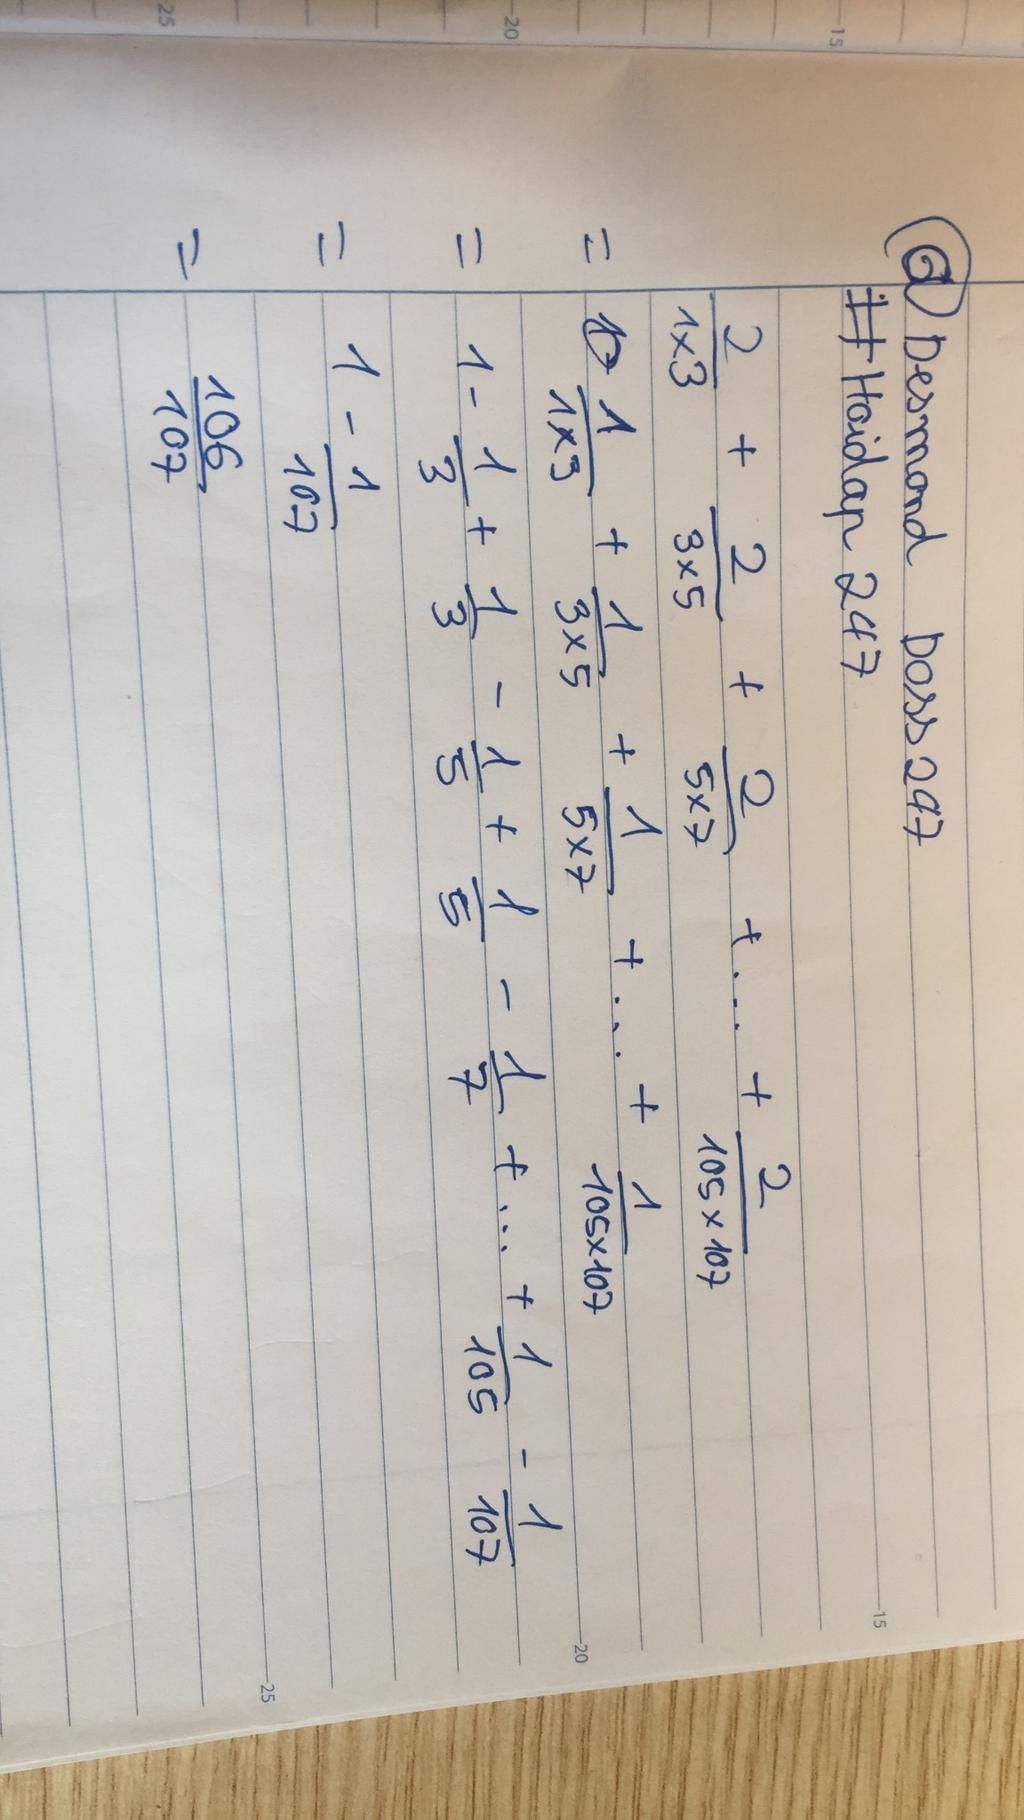 @Desmond Doss247
#Hoidap247
2/1x3 + 2/3x5 + 2/5x7 + ... + 2/105x107
= 1/1x3 + 1/3x5 + 1/5x7 + ... + 1/105x107
= 1 - 1/3 + 1/3 - 1/5 + 1/5 - 1/7 + ... + 1/105 - 1/107
= 1 - 1/107
= 106/107
15
20
25
15
20
25